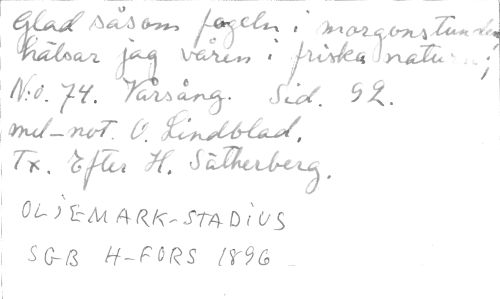 Glad såsom fogeln i morgonstunden
hälsar jag våren i friska naturen;
N:o. 74. Vårsång. Sid. 92.
mel-not. O. Lindblad.
Tx. Efter H. Sätherberg.
OLJEMARK-STADIUS
SGB H-FORS 1896